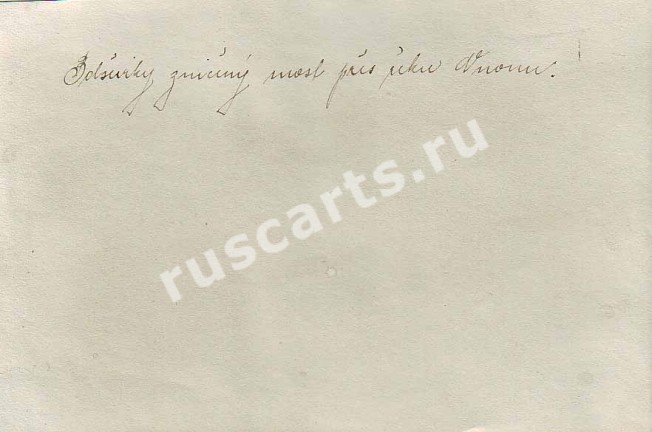 Bolševiky zničený most přes řeku Ononu.
ruscarts.ru